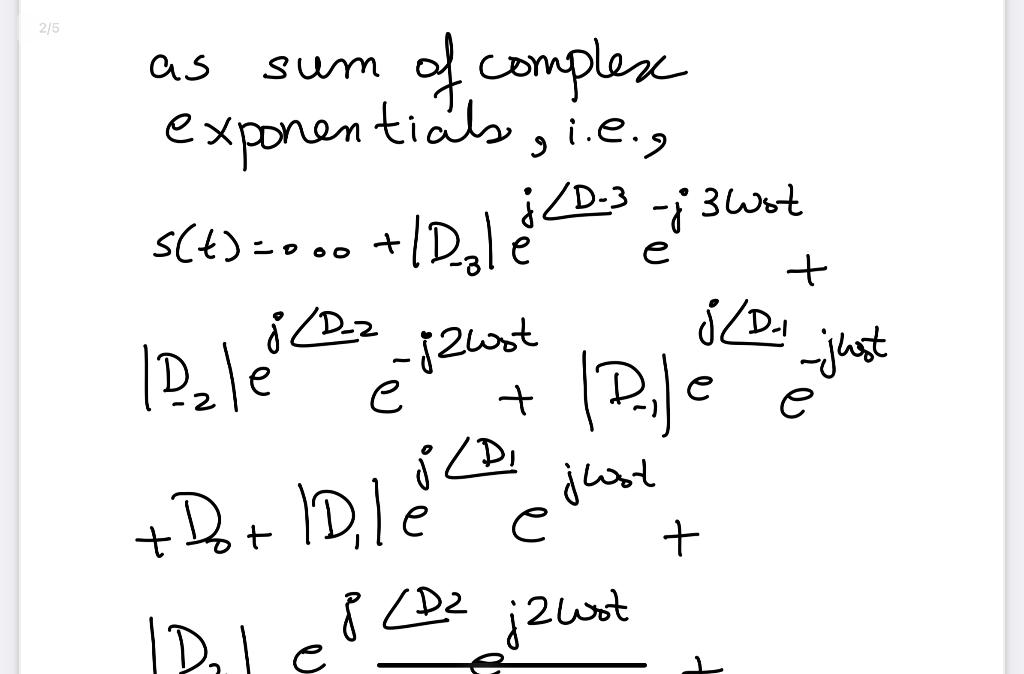 2/5
as sum of complex
exponentials, i.e.,
s(t) = ... + |D₋₃| e^{j∠D₋₃} e^{-j3ω₀t} +
|D₋₂| e^{j∠D₋₂} e^{-j2ω₀t} + |D₋₁| e^{j∠D₋₁} e^{-jω₀t}
+ D₀ + |D₁| e^{j∠D₁} e^{jω₀t} +
|D₂| e^{j∠D₂} e^{j2ω₀t} +